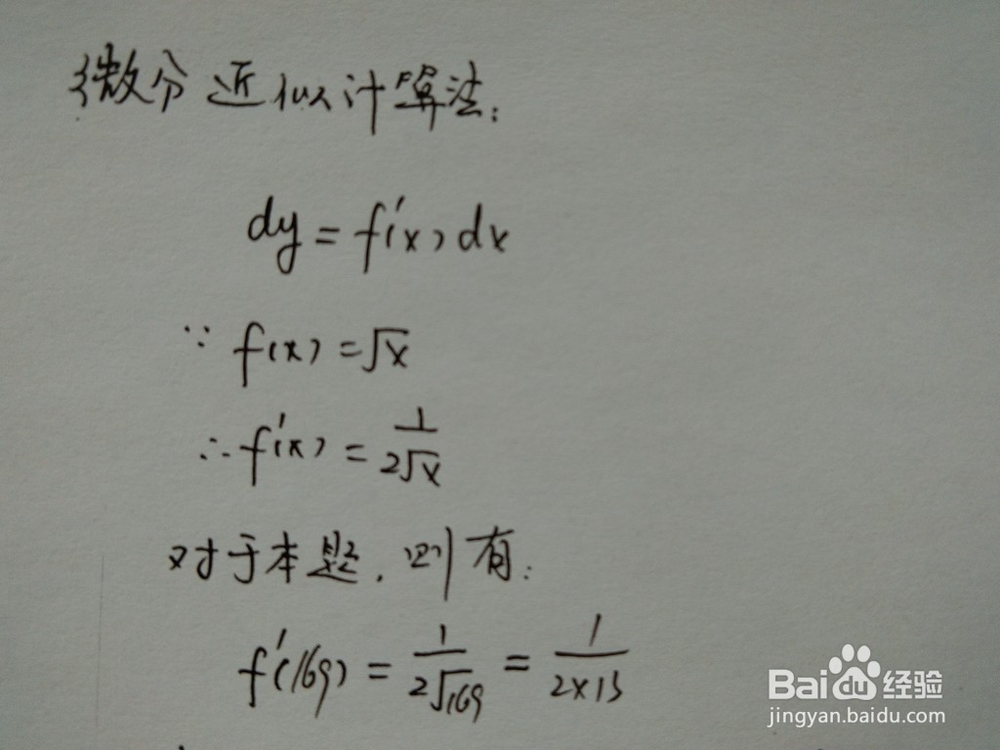 微分近似计算法:
dy = f'(x) dx
∵ f(x) = √x
∴ f'(x) = 1/(2√x)
对于本题,则有:
f'(169) = 1/(2√169) = 1/(2×13)
Baidu经验
jingyan.baidu.com